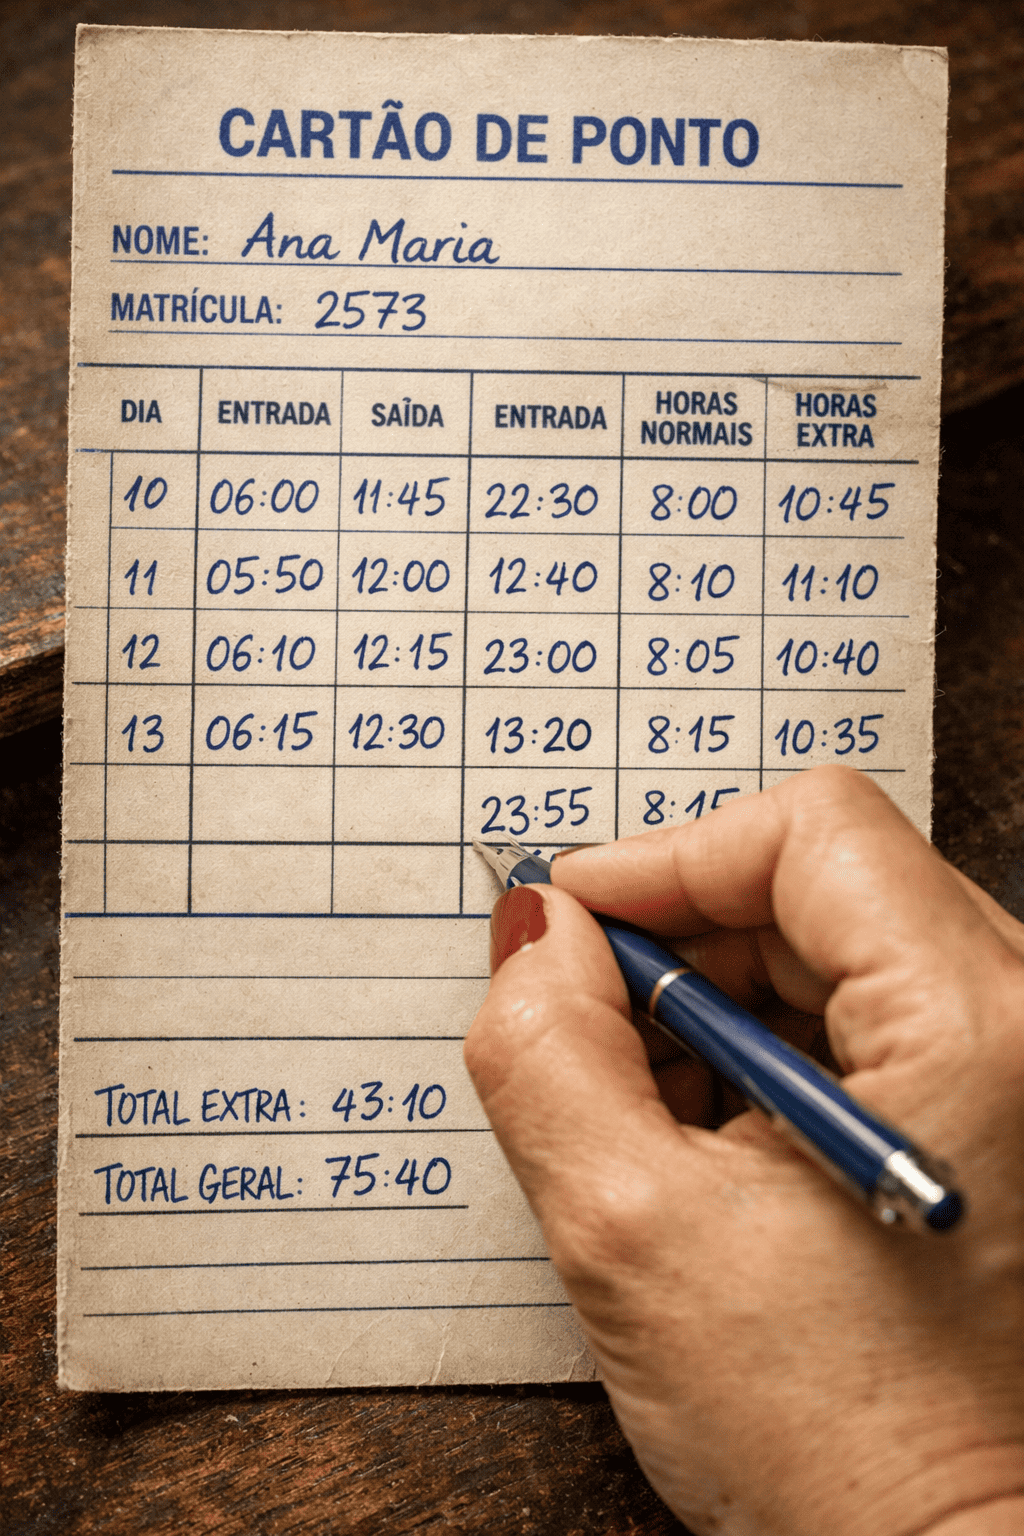 CARTÃO DE PONTO
NOME: Ana Maria
MATRÍCULA: 2573
DIA ENTRADA SAÍDA ENTRADA HORAS NORMAIS HORAS EXTRA
10 06:00 11:45 22:30 8:00 10:45
11 05:50 12:00 12:40 8:10 11:10
12 06:10 12:15 23:00 8:05 10:40
13 06:15 12:30 13:20 8:15 10:35
23:55 8:15
TOTAL EXTRA: 43:10
TOTAL GERAL: 75:40